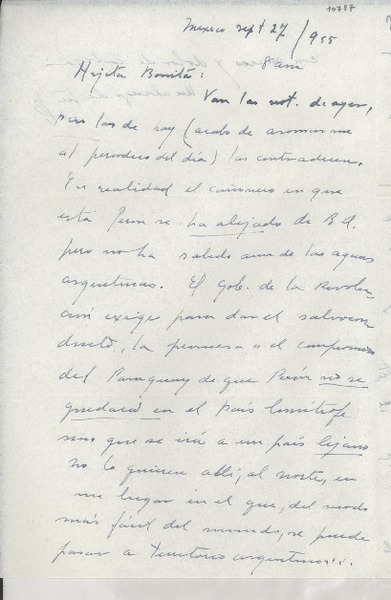 10787
Mexico sept 27/955
8 am
Hijita Bonita:
Van las not. de ayer,
pero las de hoy (acabo de asomarme
al periódico del día) las contradicen.
En realidad el cañonero en que
está Juan se ha alejado de B A.
pero no ha salido aun de las aguas
argentinas. El Gob. de la Revolu-
ción exige para dar el salvocon-
ducto, la promesa o el compromiso
del Paraguay de que Perón no se
quedará en el país limítrofe
sino que se irá a un país lejano
no lo quieren allí, al norte, en
un lugar en el que, del modo
más fácil del mundo, se puede
pasar a territorio argentino...